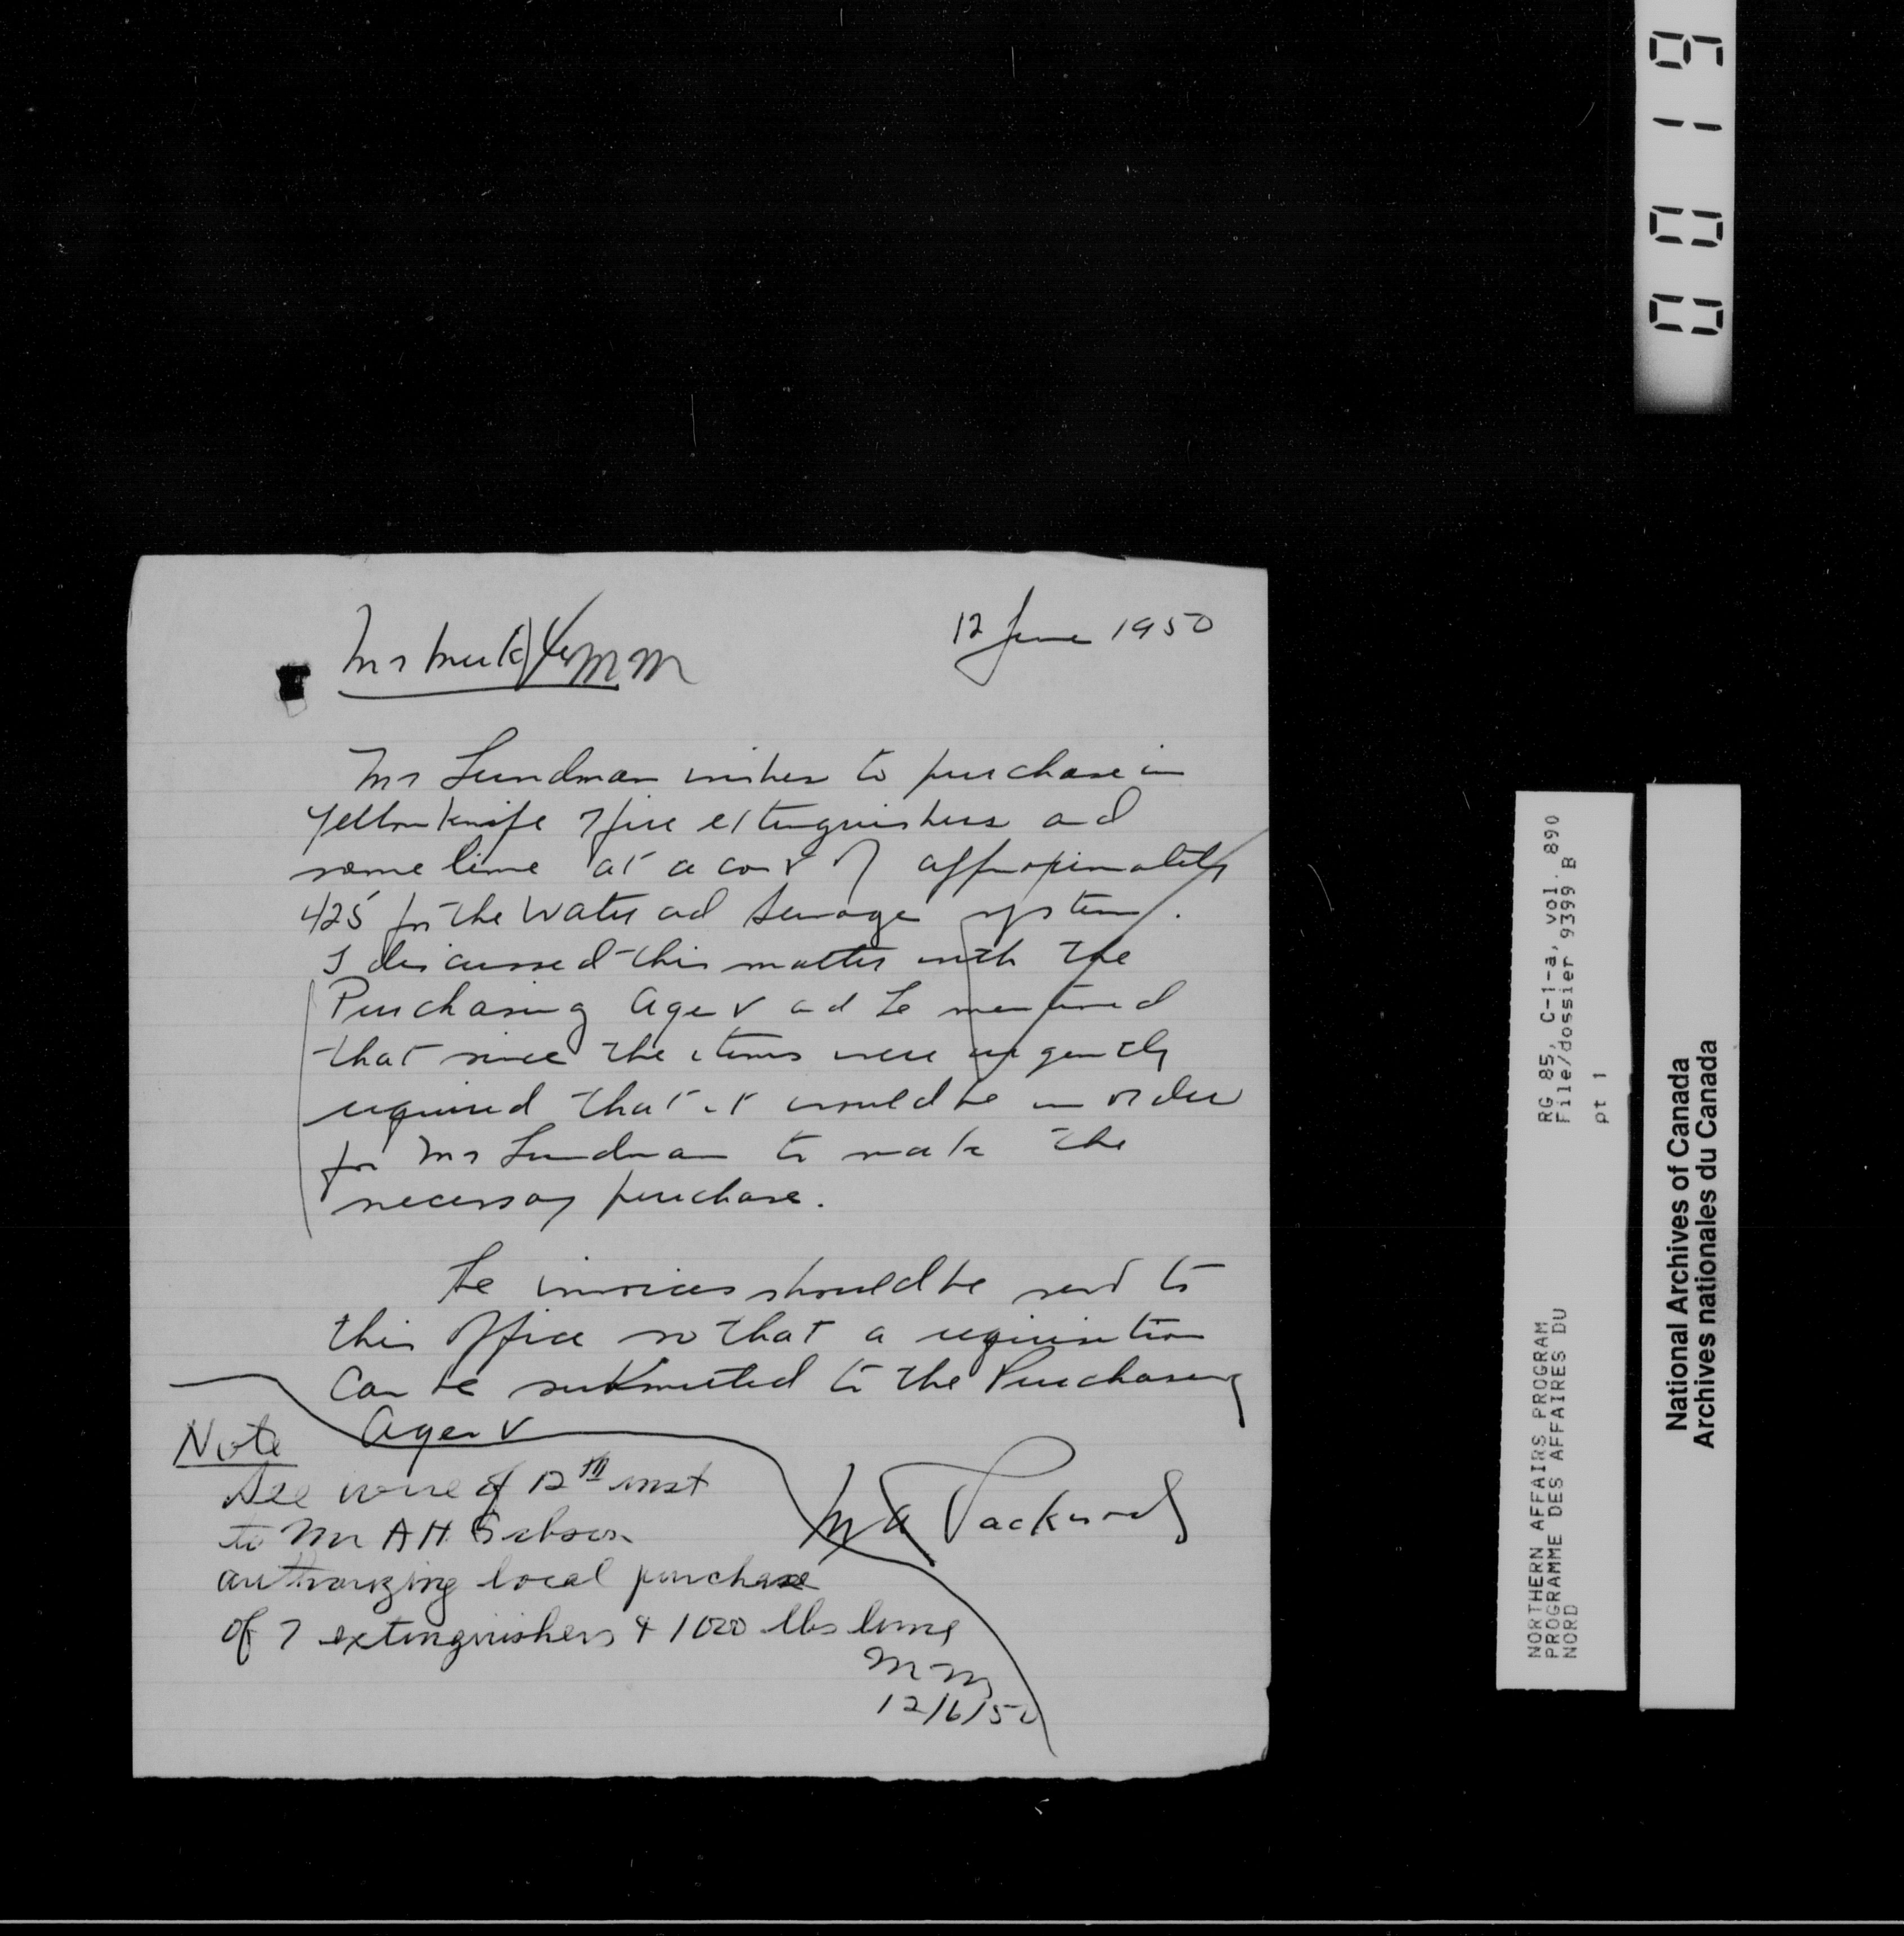 0019
12 June 1950
Mr Meikle MM
Mr Lundman wishes to purchase in
Yellowknife 7 fire extinguishers and
some lime at a cost of approximately
425 for the Water and Sewage system.
I discussed this matter with the
Purchasing Agent and he mentioned
that since the items were urgently
required that it would be in order
for Mr Lundman to make the
necessary purchase.
The invoices should be sent to
this office so that a requisition
can be submitted to the Purchasing
Agent
Note
See wire of 12th inst
to Mr A H Gibson
authorizing local purchase
of 7 extinguishers & 1000 lbs lime
MM
12/6/50
Packwood
RG 85, C-1-a, vol. 890
File/dossier 9399 B
pt 1
NORTHERN AFFAIRS PROGRAM
PROGRAMME DES AFFAIRES DU
NORD
National Archives of Canada
Archives nationales du Canada